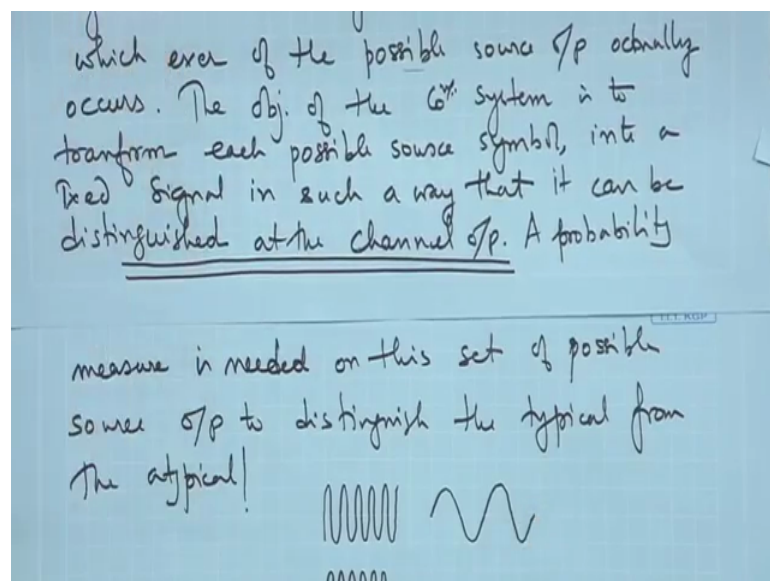 which ever of the possible source o/p actually
occurs. The obj. of the Com system is to
tranform each possible source symbol, into a
Txed signal in such a way that it can be
distinguished at the channel o/p. A probability
I.I.T. KGP
measure is needed on this set of possible
source o/p to distinguish the typical from
the atypical!